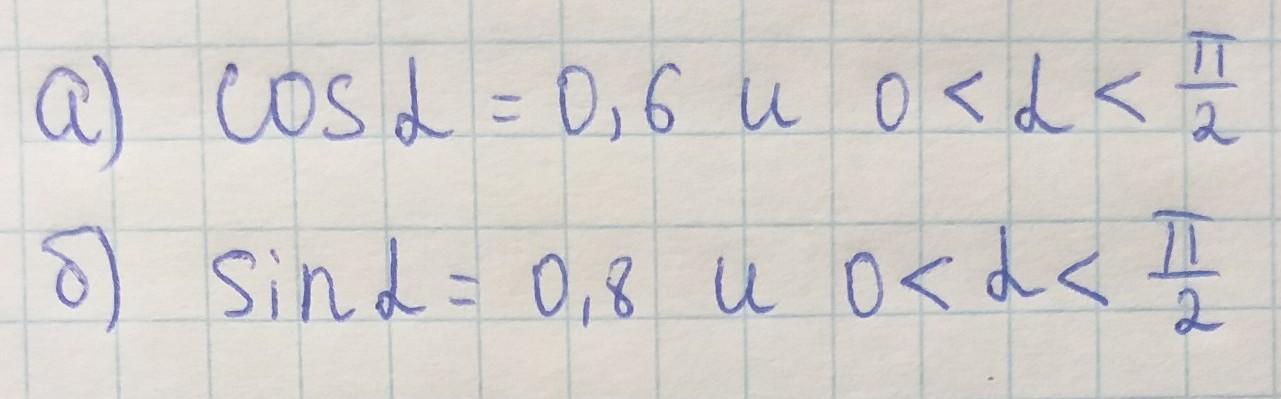 а) cos α = 0,6 и 0 < α < π/2
б) sin α = 0,8 и 0 < α < π/2